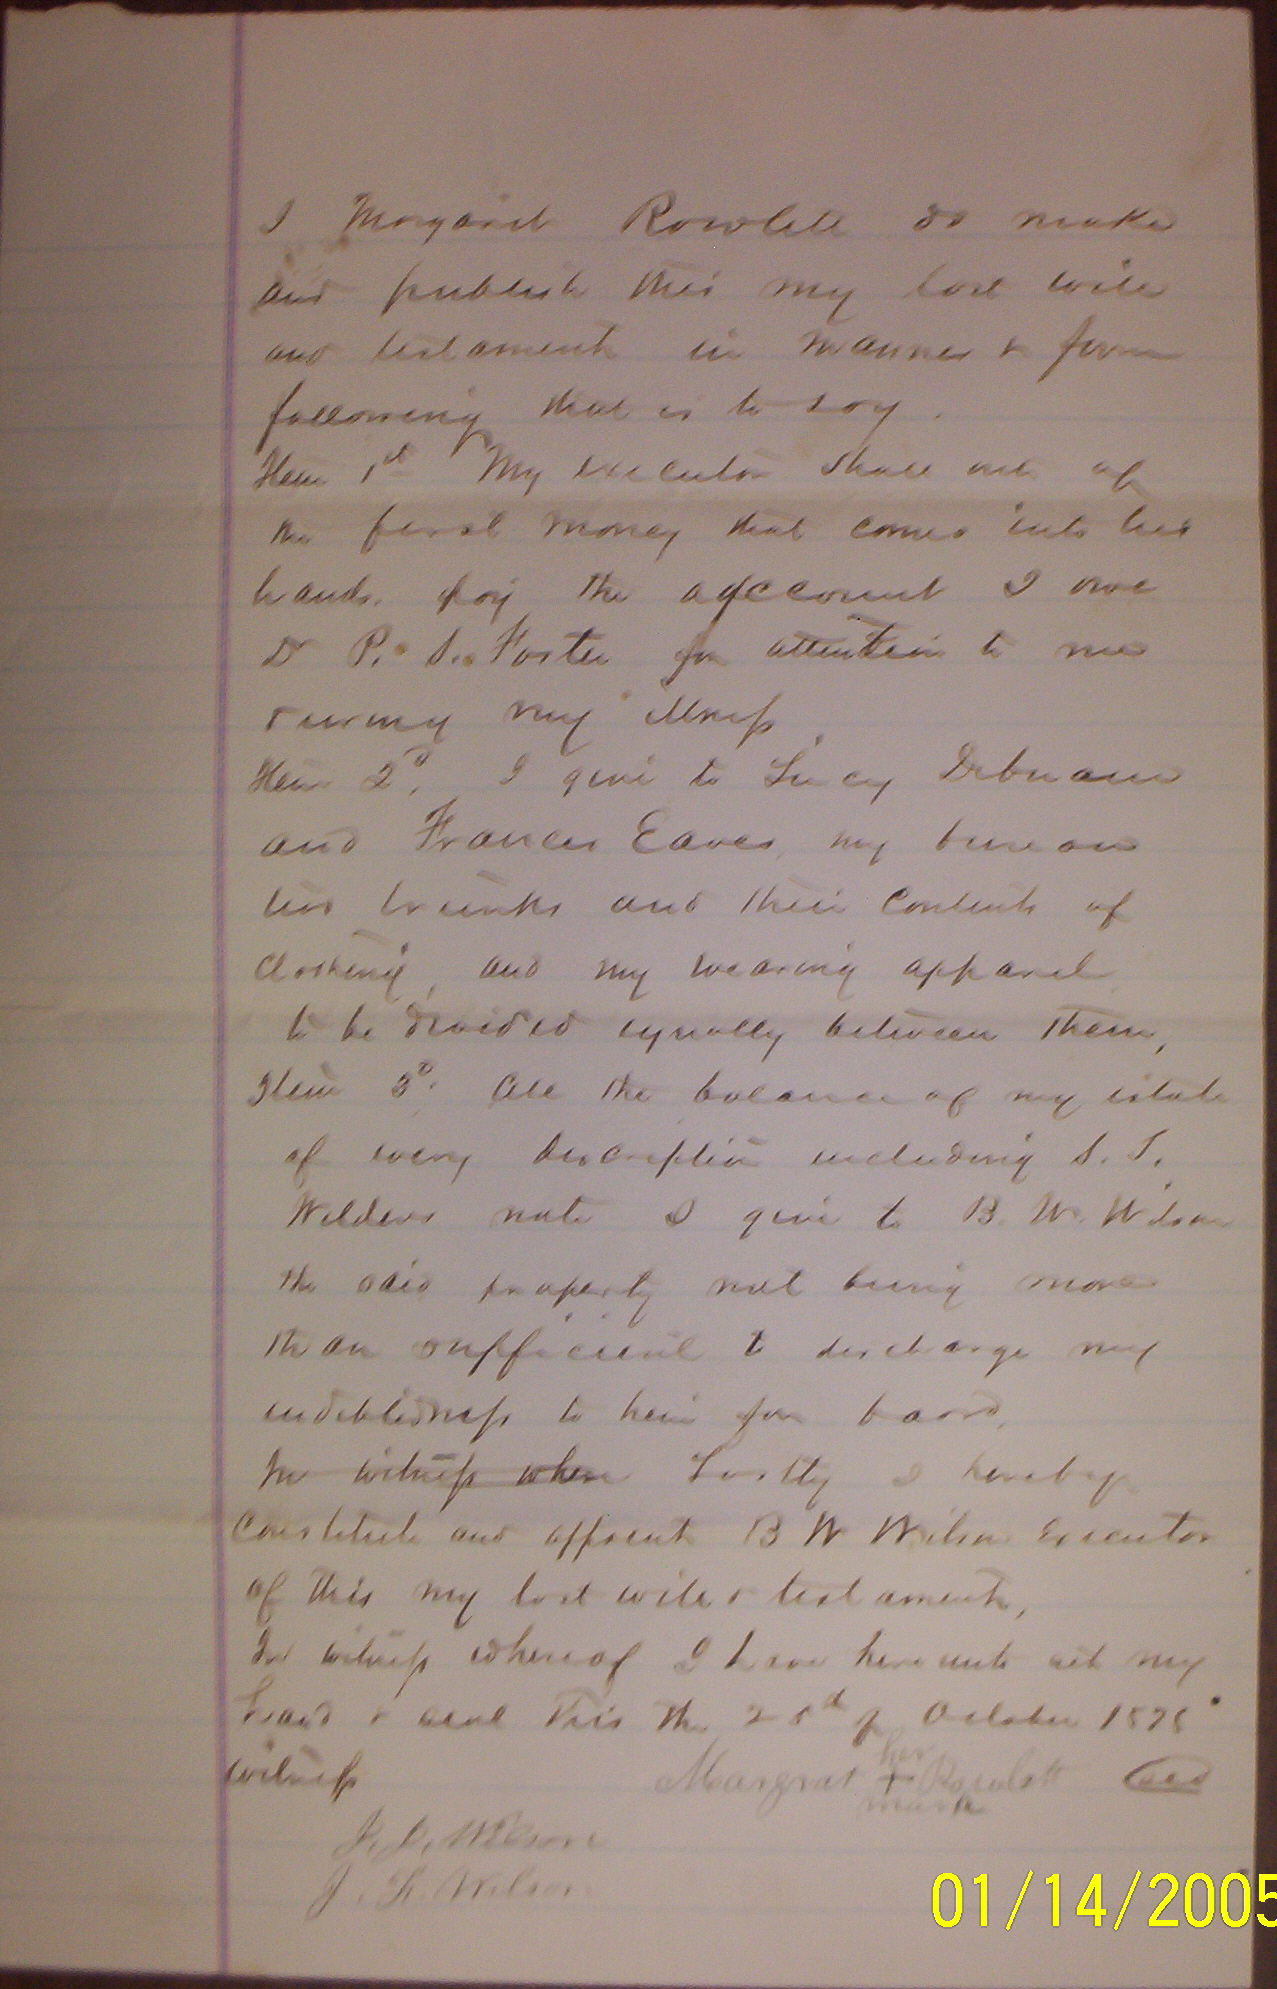 I Margaret Rowlett do make
and publish this my last will
and testament in manner & form
following that is to say.
Item 1st My executor shall out of
the first money that comes into his
hands. pay the acccount I owe
Dr P. S. Foster for attention to me
during my illness.
Item 2d, I give to Lucy
and Frances Eaves, my bureau
two trunks and their contents of
clothing, and my wearing apparel
to be divided equally between them,
Item 3d. All the balance of my estate
of every description including S. T.
Wilders note I give to B. W. Wilson
the said property not being more
than sufficient to discharge my
indebtedness to him for board,
In witness where Lastly I hereby
constitute and appoint B W Wilson Executor
of this my last will & testament,
In witness whereof I have hereunto set my
hand & seal this the 25th of October 1878
Witness Margrat her + mark Rowlett seal
J. J. Wilson
J. Wilson
01/14/2005